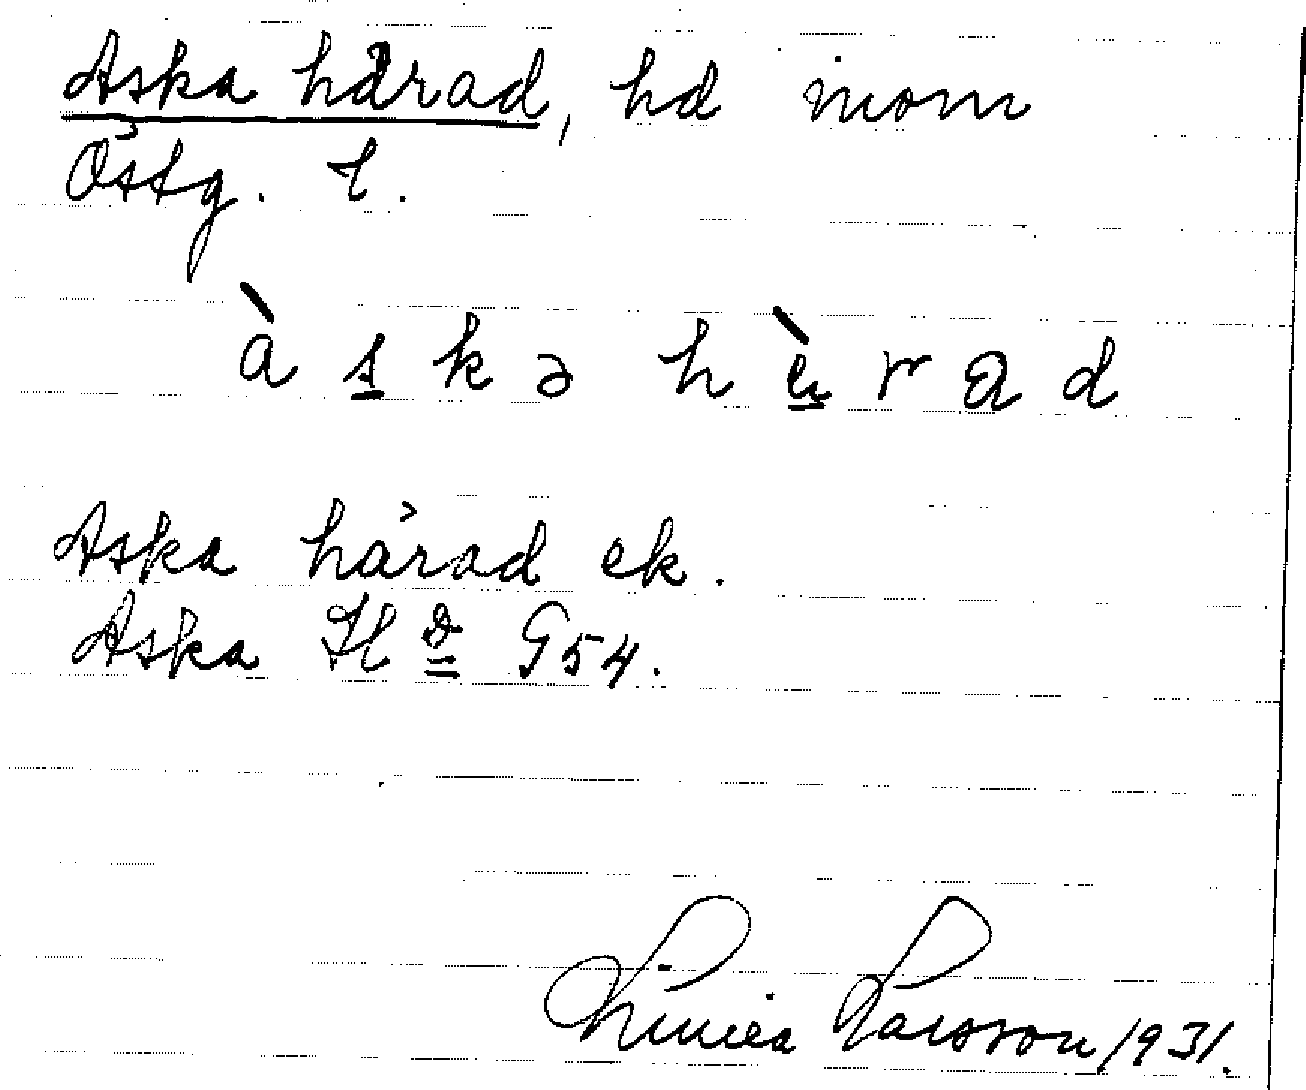 Aska härad, hd inom
Östg. l.
àskə hèrad
Aska härad ek.
Aska Hd G54.
Linnea Larsson 1931.